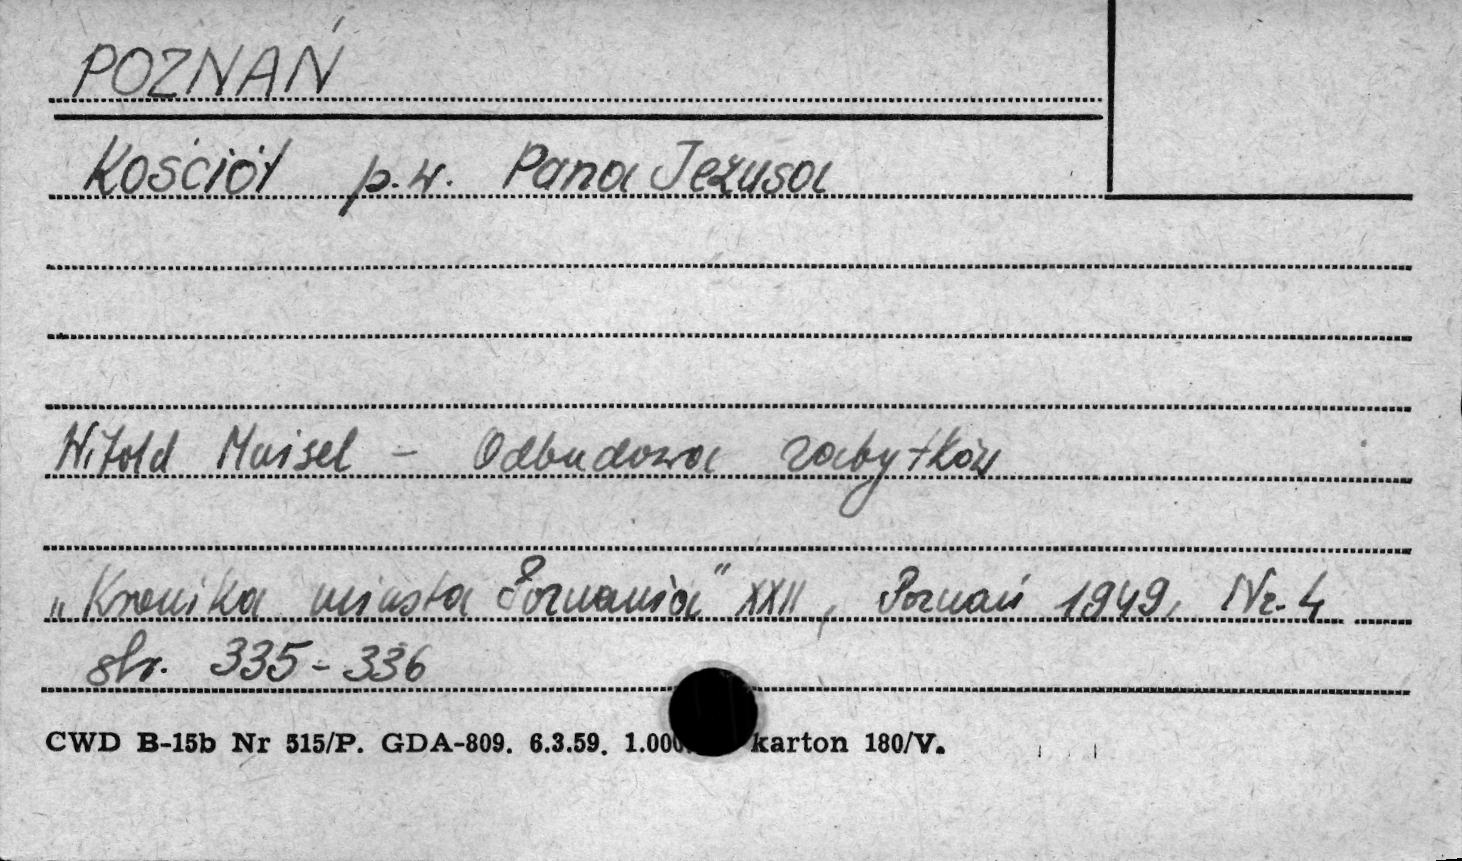 POZNAŃ
Kościół p.w. Pana Jezusa
Witold Maisel - Odbudowa zabytków
„Kronika miasta Poznania" XXII, Poznań 1949, Nr. 4
str. 335-336
CWD B-15b Nr 515/P. GDA-809. 6.3.59. 1.000 karton 180/V.